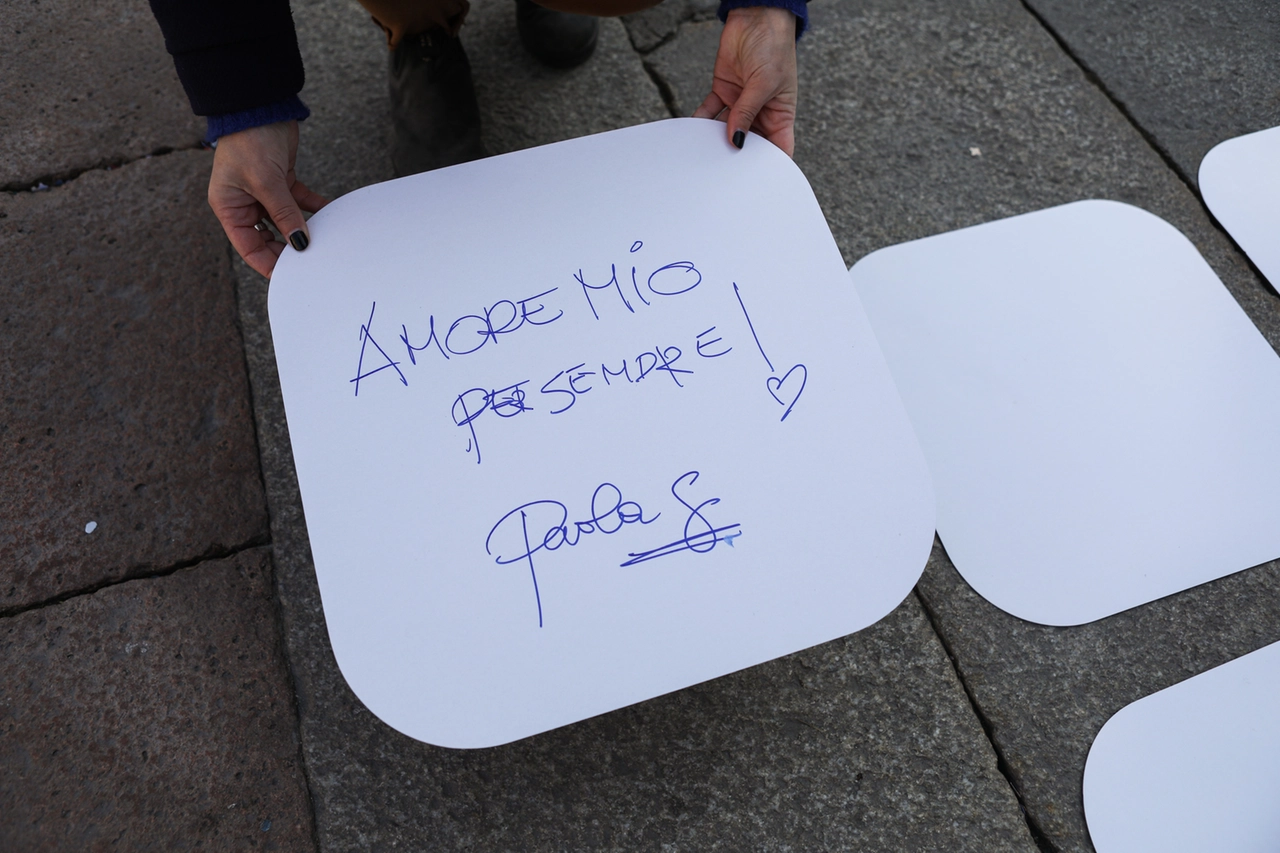 AMORE MIO
PER SEMPRE!
Paola S